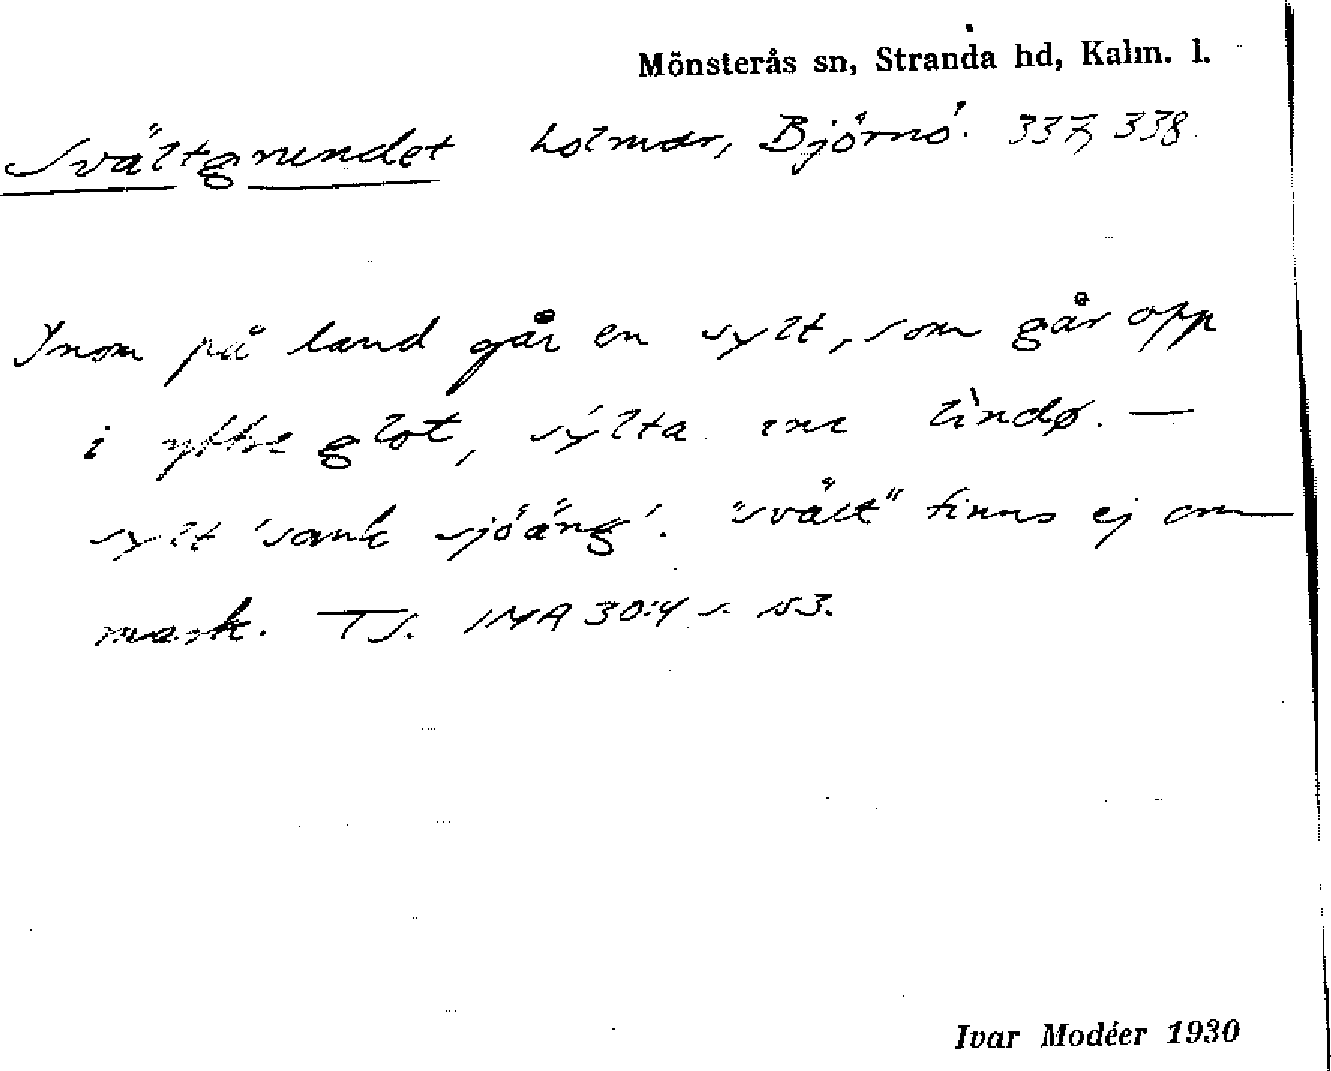 Mönsterås sn, Stranda hd, Kalm. l.
Svältgrundet holmar, Björnö. 337, 338.
Inom på land går en sylt, som går opp
i yttre glot, sylta me lindø. —
sylt 'sank sjöäng'. "svält" finns ej om
mark. TS. IMA 30:4 s. 153.
Ivar Modéer 1930